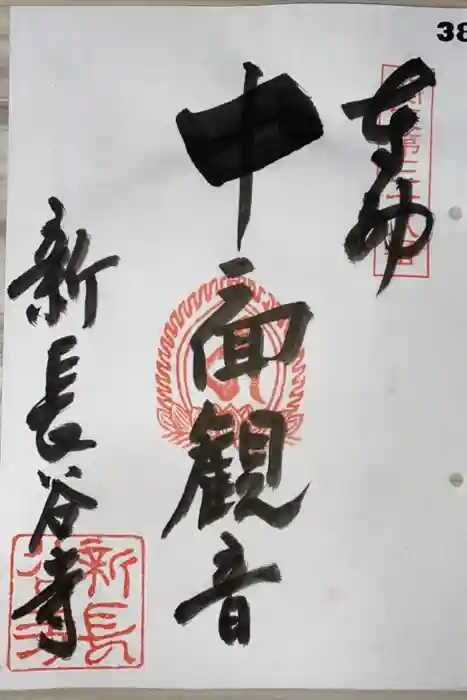 38
奉拝
十一面観音
新長谷寺
新長谷寺